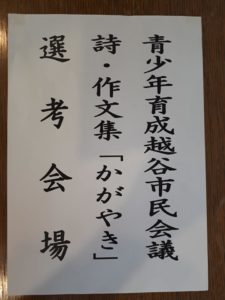 青少年育成越谷市民会議
詩・作文集「かがやき」
選考会場